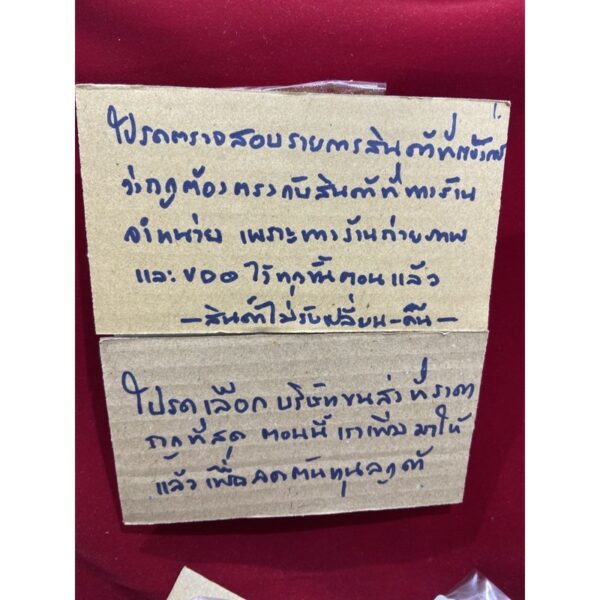 โปรดตรวจสอบรายการสินค้าที่
ว่าถูกต้องตรงกับสินค้าที่ทางร้าน
จำหน่าย เพราะทางร้านถ่ายภาพ
และ VDO ไว้ทุกขั้นตอนแล้ว
-สินค้าไม่รับเปลี่ยน-คืน-
โปรดเลือกบริษัทขนส่งที่ราคา
ถูกที่สุด ตอนนี้ เรา มาให้
แล้วเพื่อลดต้นทุนลูกค้า